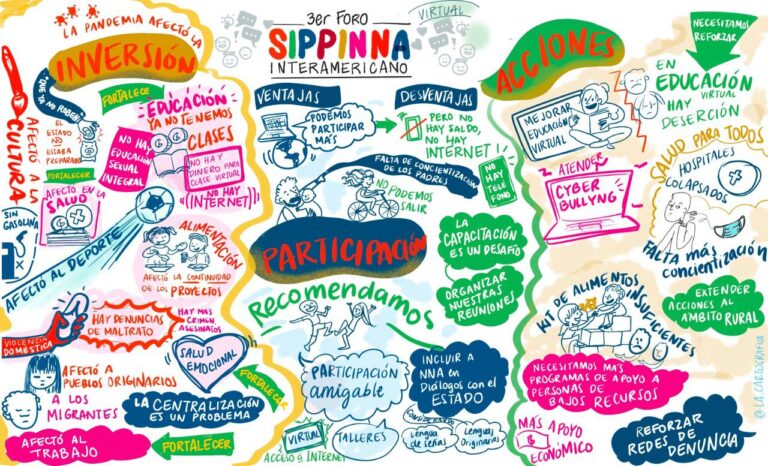 LA PANDEMIA AFECTÓ LA
INVERSIÓN
AFECTÓ A LA
CULTURA
FORTALECE
EL
ESTADO
NO ESTABA
PREPARADO
FORTALECER
EDUCACIÓN
YA NO TENEMOS
CLASES
NO HAY
EDUCACIÓN
SEXUAL
INTEGRAL
NO HAY
DINERO PARA
CLASE VIRTUAL
NO HAY
((INTERNET))
AFECTÓ EN LA
SALUD
SIN
GASOLINA
AFECTO AL DEPORTE
ALIMENTACIÓN
AFECTÓ LA CONTINUIDAD
DE LOS PROYECTOS
HAY DENUNCIAS
DE MALTRATO
HAY MÁS
CRIMEN
ASESINATOS
VIOLENCIA
DOMÉSTICA
SALUD
EMOCIONAL
AFECTÓ A
PUEBLOS ORIGINARIOS
A LOS
MIGRANTES
FORTALECER
LA CENTRALIZACIÓN
ES UN PROBLEMA
AFECTÓ AL
TRABAJO
FORTALECER
3er FORO
VIRTUAL
SIPPINNA
INTERAMERICANO
VENTAJAS
PODEMOS
PARTICIPAR
MÁS
DESVENTAJAS
PERO NO
HAY SALDO,
NO HAY
INTERNET!
NO HAY
TELÉ
FONO
FALTA DE CONCIENTIZACIÓN
DE LOS PADRES
NO PODEMOS
SALIR
PARTICIPACIÓN
LA
CAPACITACIÓN
ES UN DESAFÍO
ORGANIZAR
NUESTRAS
REUNIONES
Recomendamos
PARTICIPACIÓN
amigable
INCLUIR A
NNA en
Diálogos con el
ESTADO
VIRTUAL
ACCESO a INTERNET
TALLERES
Lengua
de señas
Lenguas
Originarias
ACCIONES
NECESITAMOS
REFORZAR
MEJORAR
EDUCACIÓN
VIRTUAL
EN
EDUCACIÓN
VIRTUAL
HAY
DESERCIÓN
ATENDER
CYBER
BULLYNG
SALUD PARA TODOS
HOSPITALES
COLAPSADOS
FALTA MÁS
concientización
KIT DE ALIMENTOS
INSUFICIENTES
EXTENDER
ACCIONES AL
ÁMBITO RURAL
NECESITAMOS MÁS
PROGRAMAS DE APOYO A
PERSONAS DE
BAJOS RECURSOS
MÁS APOYO
ECONÓMICO
REFORZAR
REDES DE
DENUNCIA
@LA.CARTOGRAFIA